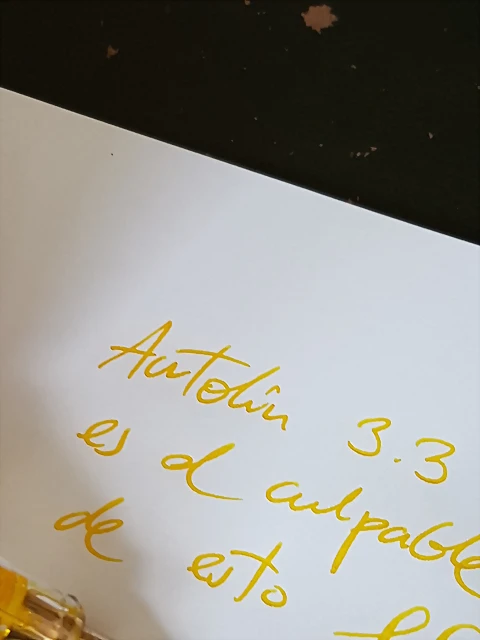 Autolin 3.3
es el culpable
de esto